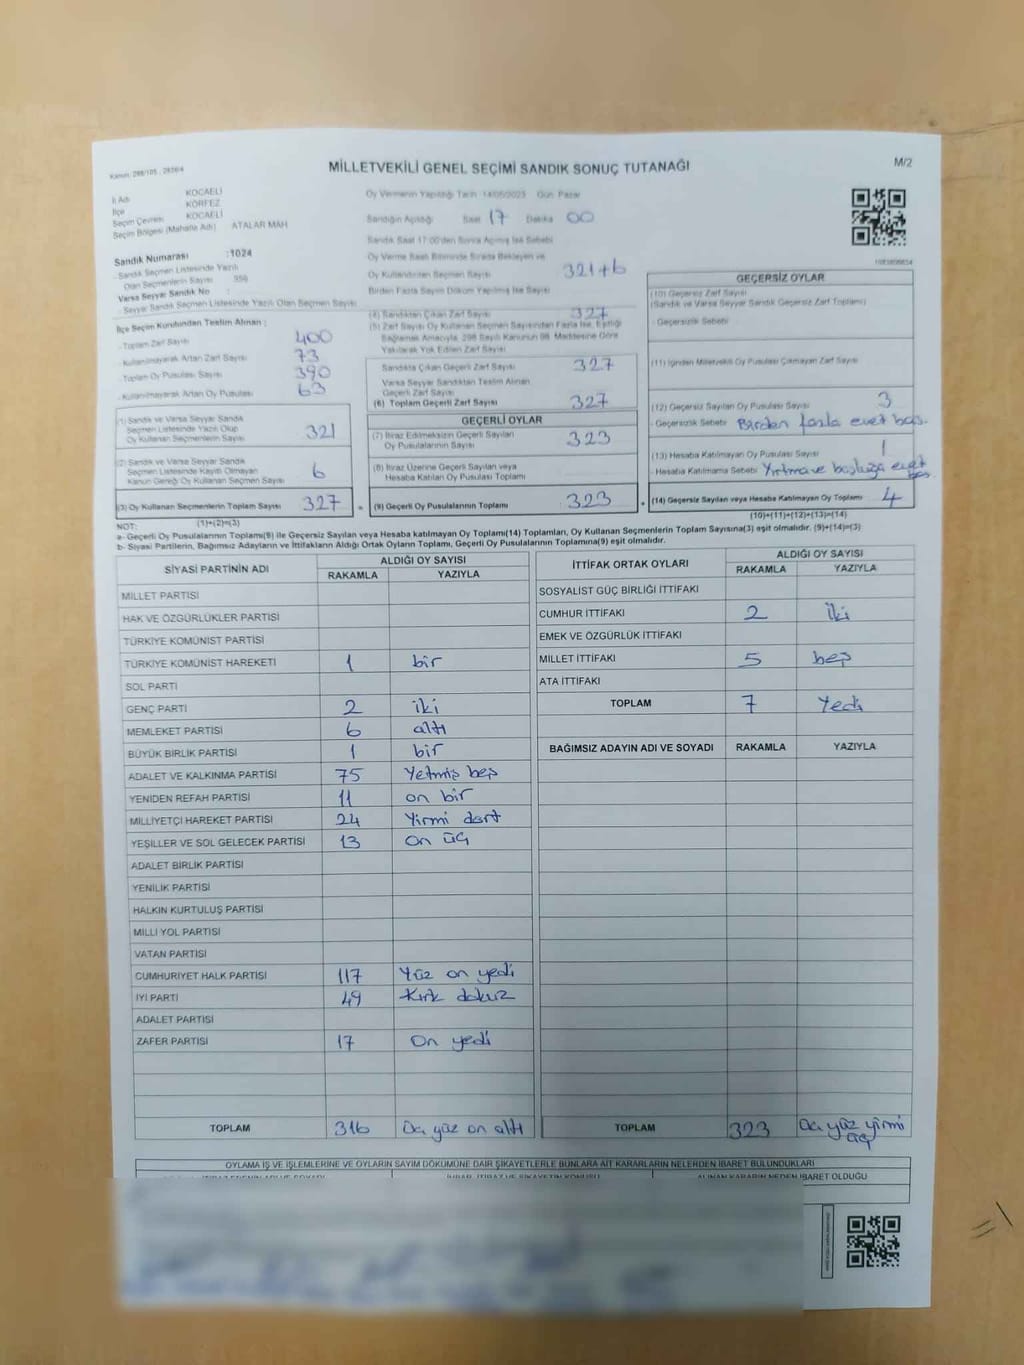 MİLLETVEKİLİ GENEL SEÇİMİ SANDIK SONUÇ TUTANAĞI
M/2
İl Adı KOCAELİ
İlçe KÖRFEZ
Seçim Çevresi KOCAELİ
Seçim Bölgesi (Mahalle Adı) ATALAR MAH
Sandık Numarası :1024
Sandık Seçmen Listesinde Yazılı
Olan Seçmenlerin Sayısı
Varsa Seyyar Sandık No :
Seyyar Sandık Seçmen Listesinde Yazılı Olan Seçmen Sayısı
İlçe Seçim Kurulundan Teslim Alınan :
- Toplam Zarf Sayısı 400
- Kullanılmayarak Artan Zarf Sayısı 73
- Toplam Oy Pusulası Sayısı 390
- Kullanılmayarak Artan Oy Pusulası 63
(1) Sandık ve Varsa Seyyar Sandık
Seçmen Listesinde Yazılı Olup
Oy Kullanan Seçmenlerin Sayısı 321
(2) Sandık ve Varsa Seyyar Sandık
Seçmen Listesinde Kayıtlı Olmayan
Kanun Gereği Oy Kullanan Seçmen Sayısı 6
(3) Oy Kullanan Seçmenlerin Toplam Sayısı 327
(1)+(2)=(3)
Oy Vermenin Yapıldığı Tarih 14/05/2023 Gün Pazar
Sandığın Açıldığı Saat 17 Dakika 00
Sandık Saat 17:00'den Sonra Açılmış İse Sebebi
Oy Verme Saati Bitiminde Sırada Bekleyen ve
Oy Kullandırılan Seçmen Sayısı 321+6
Birden Fazla Sayım Döküm Yapılmış İse Sayısı
(4) Sandıktan Çıkan Zarf Sayısı 327
(5) Zarf Sayısı Oy Kullanan Seçmen Sayısından Fazla İse, Eşitliği
Sağlamak Amacıyla, 298 Sayılı Kanunun 98. Maddesine Göre
Yakılarak Yok Edilen Zarf Sayısı
Sandıkta Çıkan Geçerli Zarf Sayısı 327
Varsa Seyyar Sandıktan Teslim Alınan
Geçerli Zarf Sayısı
(6) Toplam Geçerli Zarf Sayısı 327
GEÇERLİ OYLAR
(7) İtiraz Edilmeksizin Geçerli Sayılan
Oy Pusulalarının Sayısı 323
(8) İtiraz Üzerine Geçerli Sayılan veya
Hesaba Katılan Oy Pusulası Toplamı
(9) Geçerli Oy Pusulalarının Toplamı 323
GEÇERSİZ OYLAR
(10) Geçersiz Zarf Sayısı
(Sandık ve Varsa Seyyar Sandık Geçersiz Zarf Toplamı)
- Geçersizlik Sebebi
(11) İçinden Milletvekili Oy Pusulası Çıkmayan Zarf Sayısı
(12) Geçersiz Sayılan Oy Pusulası Sayısı 3
- Geçersizlik Sebebi Birden fazla evet bas.
(13) Hesaba Katılmayan Oy Pusulası Sayısı 1
- Hesaba Katılmama Sebebi Yırtma ve boşluğa evet bas
(14) Geçersiz Sayılan veya Hesaba Katılmayan Oy Toplamı 4
(10)+(11)+(12)+(13)=(14)
NOT:
a- Geçerli Oy Pusulalarının Toplamı(9) ile Geçersiz Sayılan veya Hesaba katılmayan Oy Toplamı(14) Toplamları, Oy Kullanan Seçmenlerin Toplam Sayısına(3) eşit olmalıdır. (9)+(14)=(3)
b- Siyasi Partilerin, Bağımsız Adayların ve İttifakların Aldığı Ortak Oyların Toplamı, Geçerli Oy Pusulalarının Toplamına(9) eşit olmalıdır.
SİYASİ PARTİNİN ADI ALDIĞI OY SAYISI
RAKAMLA YAZIYLA
MİLLET PARTİSİ
HAK VE ÖZGÜRLÜKLER PARTİSİ
TÜRKİYE KOMÜNİST PARTİSİ
TÜRKİYE KOMÜNİST HAREKETİ 1 bir
SOL PARTİ
GENÇ PARTİ 2 iki
MEMLEKET PARTİSİ 6 altı
BÜYÜK BİRLİK PARTİSİ 1 bir
ADALET VE KALKINMA PARTİSİ 75 Yetmiş beş
YENİDEN REFAH PARTİSİ 11 on bir
MİLLİYETÇİ HAREKET PARTİSİ 24 Yirmi dört
YEŞİLLER VE SOL GELECEK PARTİSİ 13 on üç
ADALET BİRLİK PARTİSİ
YENİLİK PARTİSİ
HALKIN KURTULUŞ PARTİSİ
MİLLİ YOL PARTİSİ
VATAN PARTİSİ
CUMHURİYET HALK PARTİSİ 117 Yüz on yedi
İYİ PARTİ 49 Kırk dokuz
ADALET PARTİSİ
ZAFER PARTİSİ 17 On yedi
TOPLAM 316 Üç yüz on altı
İTTİFAK ORTAK OYLARI ALDIĞI OY SAYISI
RAKAMLA YAZIYLA
SOSYALİST GÜÇ BİRLİĞİ İTTİFAKI
CUMHUR İTTİFAKI 2 iki
EMEK VE ÖZGÜRLÜK İTTİFAKI
MİLLET İTTİFAKI 5 beş
ATA İTTİFAKI
TOPLAM 7 Yedi
BAĞIMSIZ ADAYIN ADI VE SOYADI RAKAMLA YAZIYLA
TOPLAM 323 Üç yüz yirmi üç
OYLAMA İŞ VE İŞLEMLERİNE VE OYLARIN SAYIM DÖKÜMÜNE DAİR ŞİKAYETLERLE BUNLARA AİT KARARLARIN NELERDEN İBARET BULUNDUKLARI
ALINAN KARARIN NEDEN İBARET OLDUĞU